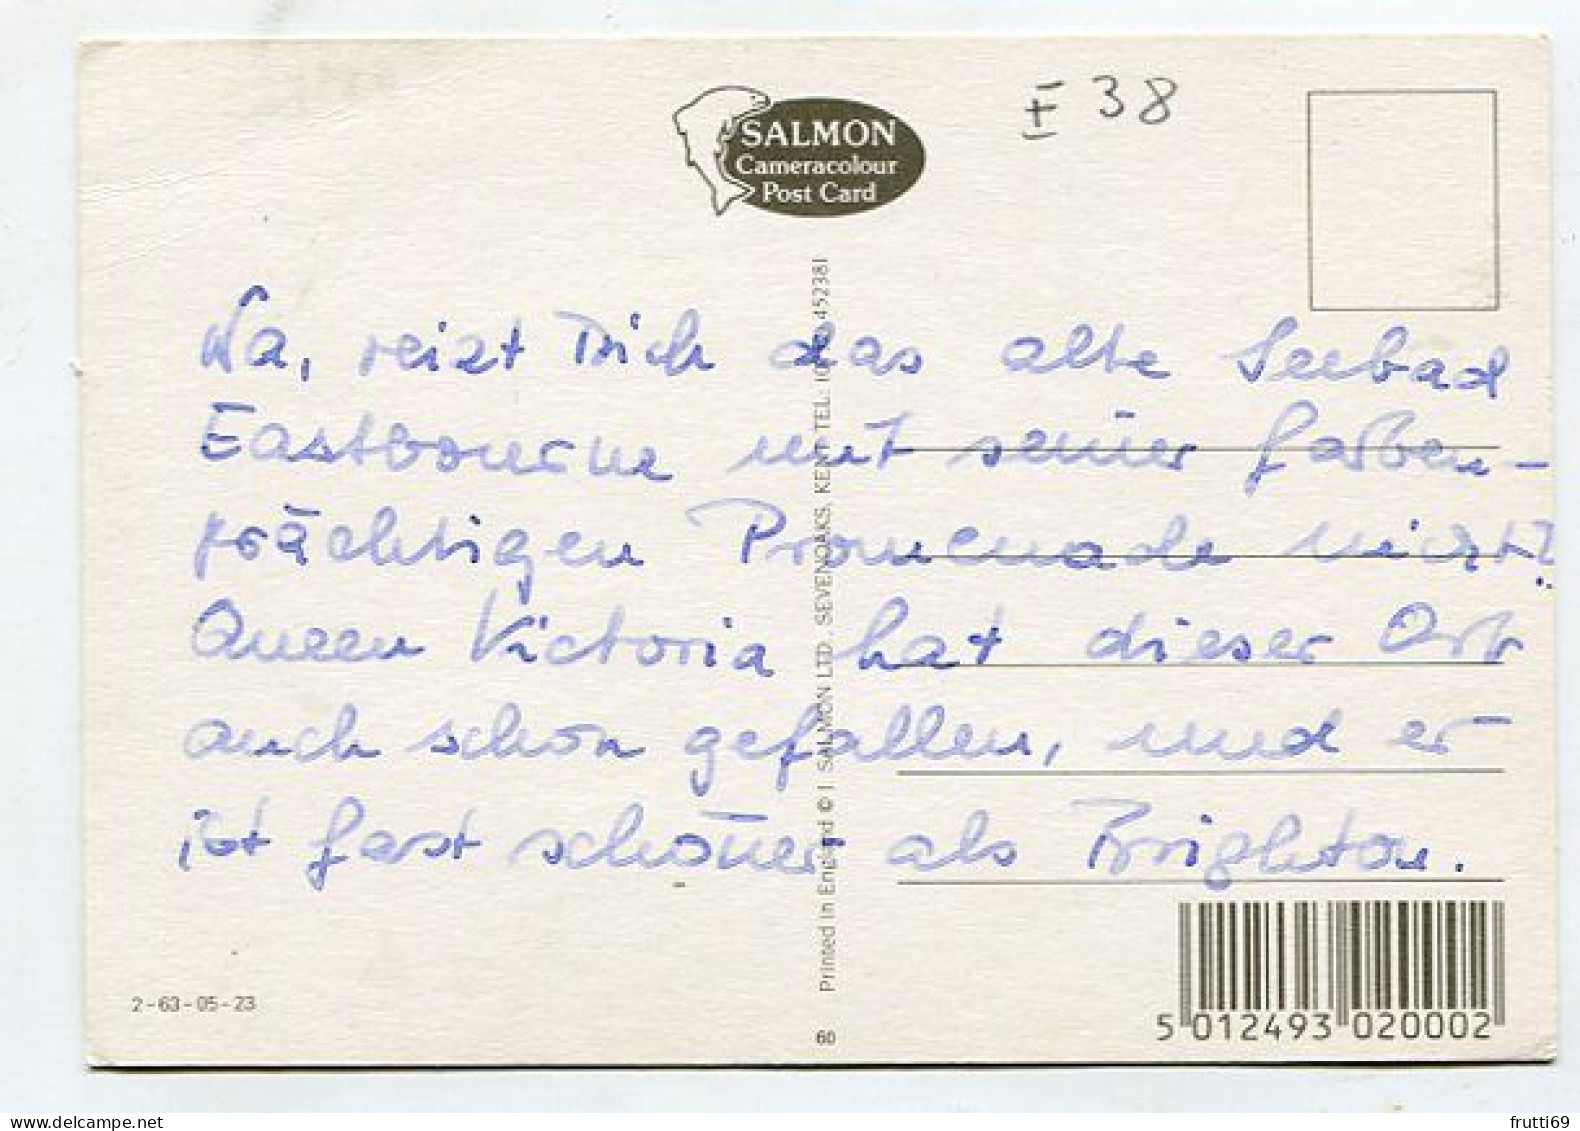 ± 38
SALMON
Cameracolour
Post Card
Na, reizt Dich das alte Seebad
Eastbourne mit seiner farben-
prächtigen Promenade nicht?
Queen Victoria hat dieser Ort
auch schon gefallen, und er
ist fast schöner als Brighton.
Printed in England © J. SALMON LTD., SEVENOAKS, KENT. TEL: 452381
2-63-05-23
60
5 012493 020002
www.delcampe.net
frutti69